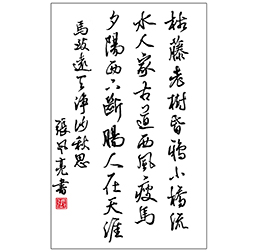 枯藤老樹昏鴉小橋流
水人家古道西風瘦馬
夕陽西下斷腸人在天涯
馬致遠天淨沙秋思
張風亮書